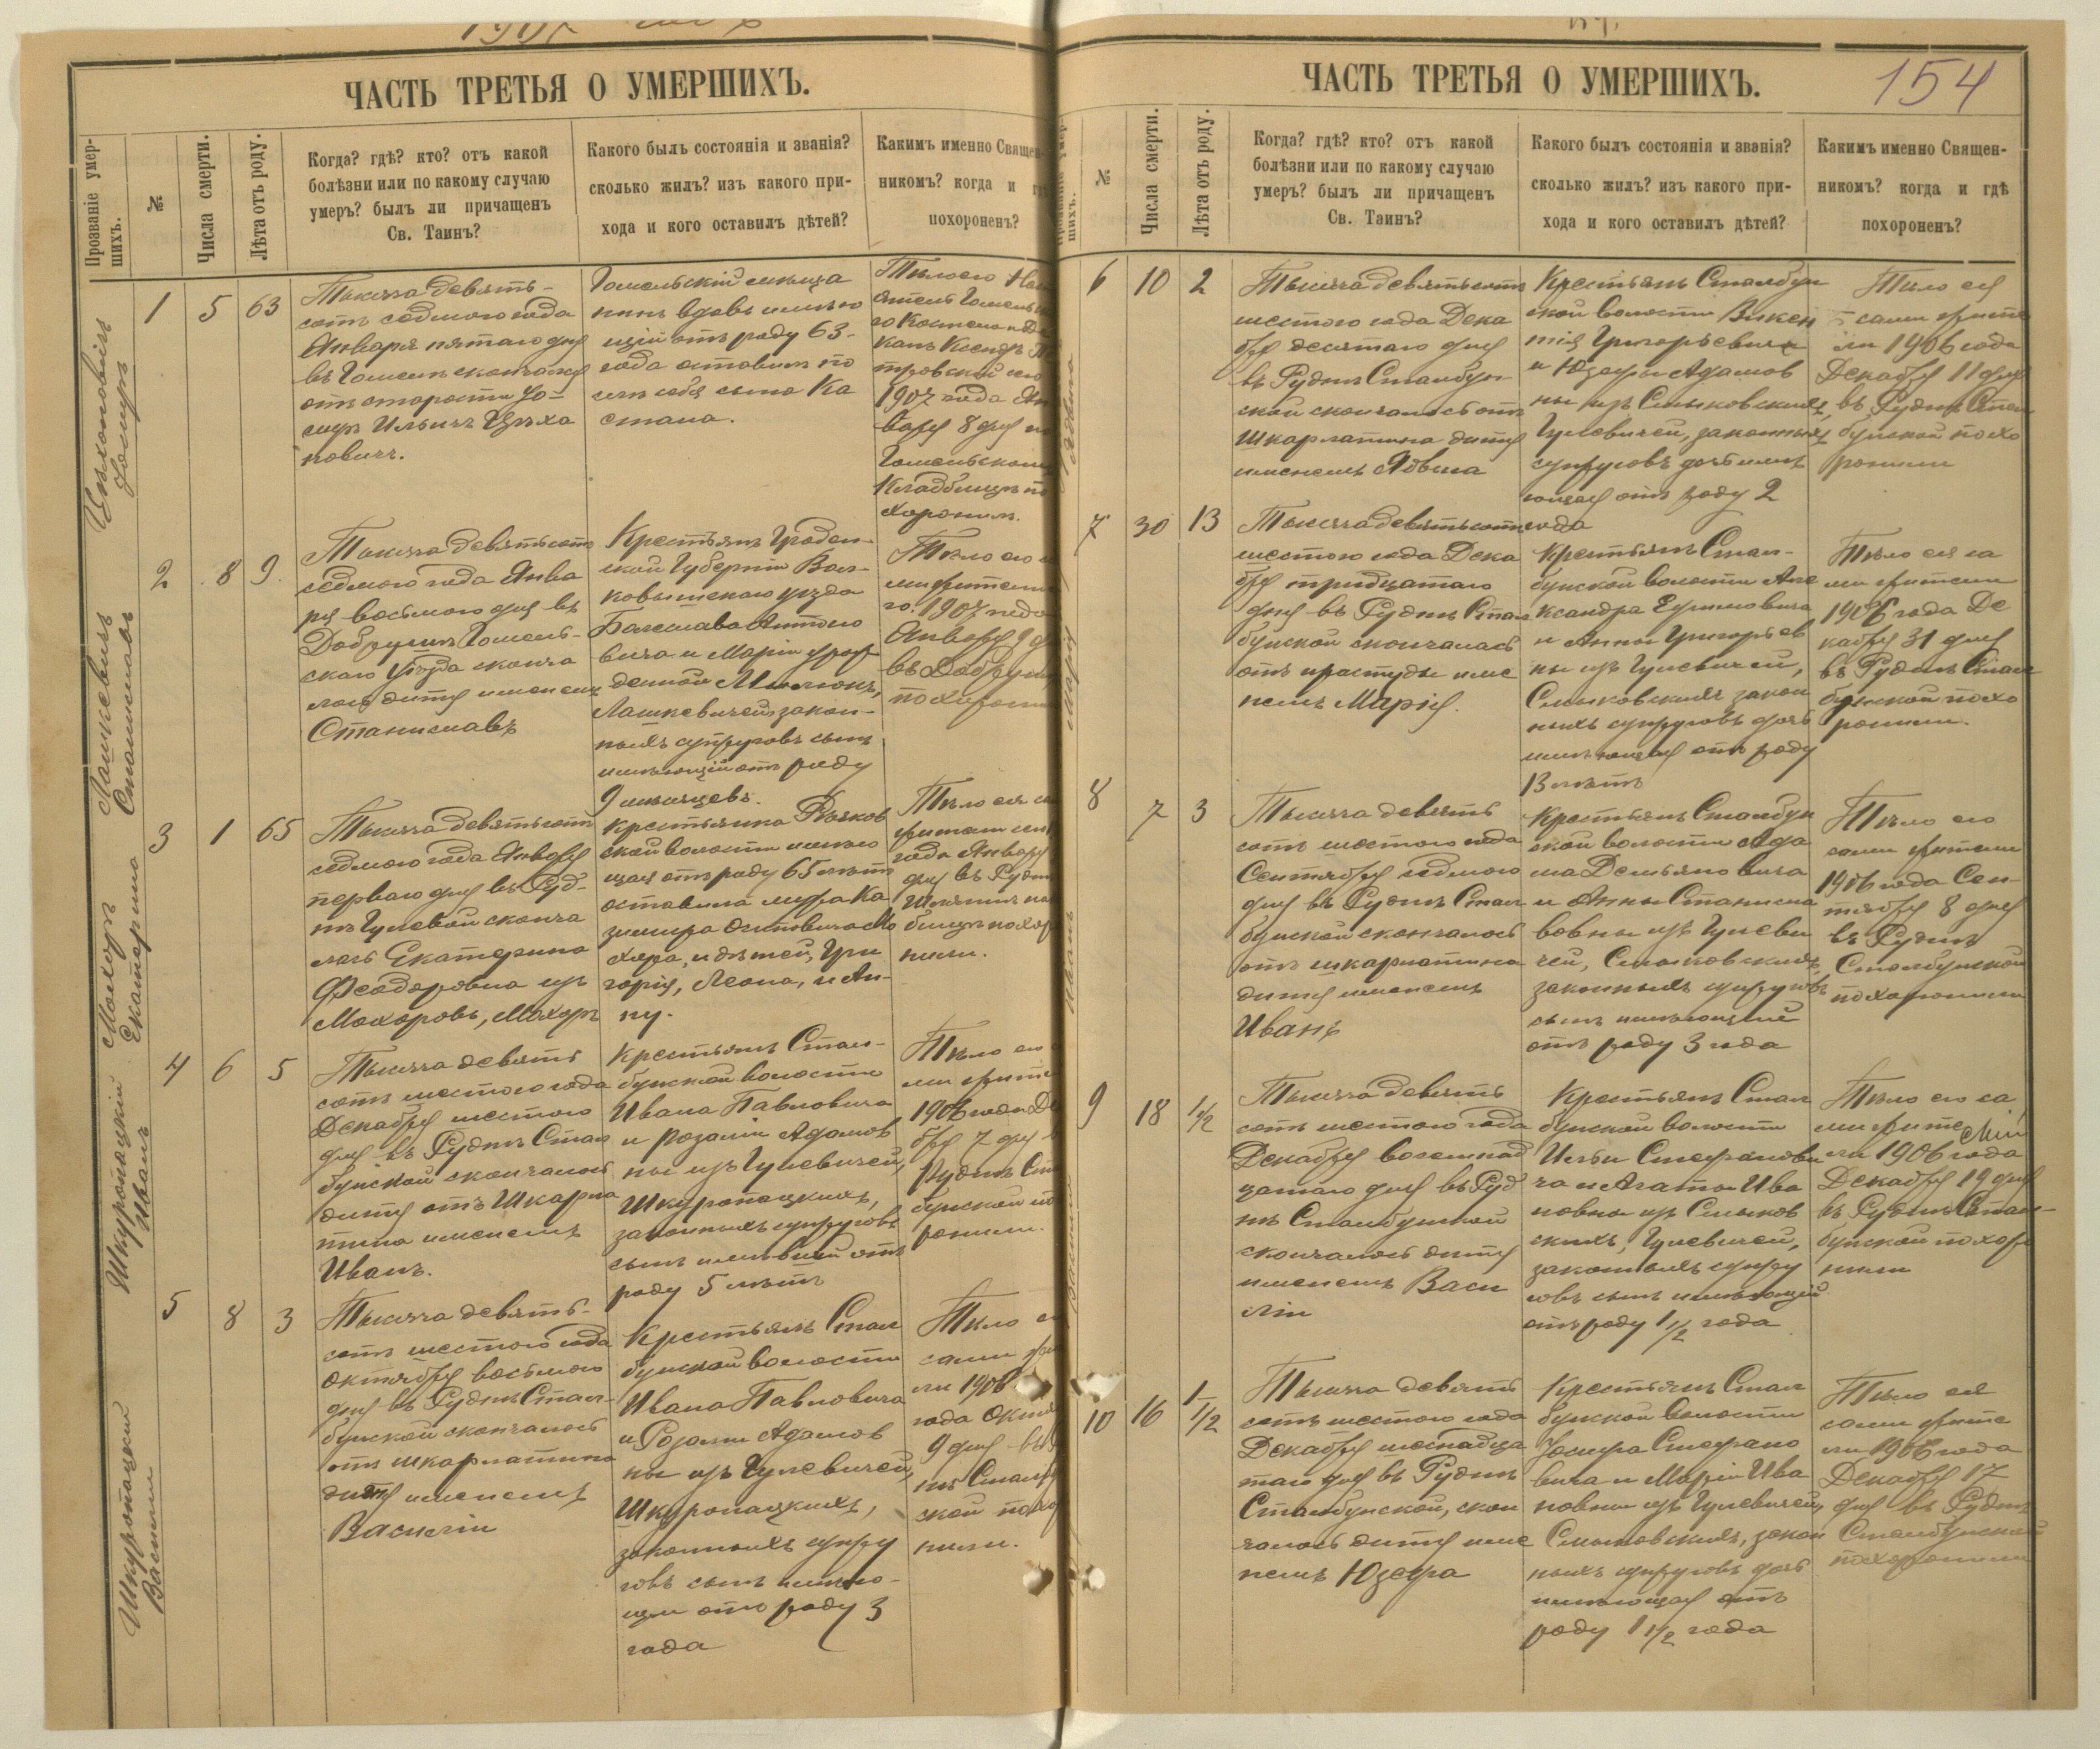 ЧАСТЬ ТРЕТЬЯ О УМЕРШИХЪ.
Прозваніе умер-
шихъ.
№
Числа смерти.
Лѣта отъ роду.
Когда? гдѣ? кто? отъ какой
болѣзни или по какому случаю
умеръ? былъ ли причащенъ
Св. Таинъ?
Какого былъ состоянія и званія?
сколько жилъ? изъ какого при-
хода и кого оставилъ дѣтей?
Какимъ именно Священ-
никомъ? когда и гдѣ
похороненъ?
Цѣхоновичъ
Іосифъ
1 5 63
Тысяча девять-
сотъ седмого года
Января пятаго дня
въ Гомелѣ скончался
отъ старости Іо-
сифъ Ильичъ Цѣхо
новичъ.
Гомельскій мѣща
нинъ вдовъ имѣю
щій отъ роду 63-
года оставилъ по
слѣ себя сына Ка
1907 года Ян
варя 8 дня
Гомельскомъ
Кладбищѣ по
хоронилъ.
Лашкевичъ
Станиславъ
2 8 9
Тысяча девятьсотъ
седмого года Янва
ря восьмого дня въ
Добрушѣ Гомель-
скаго Уѣзда сконча
лось дитя именемъ
Станиславъ
Крестьянъ Гроден-
ской Губерніи Вол-
ковышскаго уѣзда
Болеслава Антоно
вича и Маріи урож
денной
Лашкевичей, закон-
ныхъ супруговъ сынъ
имѣющій отъ роду
9 мѣсяцевъ.
Тѣло его
го. 1907 года
Января 9 д
въ Добруш
похорони
Мохоръ
Екатерина
3 1 65
Тысяча девятьсотъ
седмого года Января
перваго дня въ Руд-
нѣ Гулевой сконча
лась Екатерина
Феодоровна изъ
Мохоровъ, Мохоръ
крестьянка
ской волости имѣю
щая отъ роду 65 лѣтъ
оставила мужа Ка
зимира Осиповича Мо
хора, и дѣтей, Гри
горія, Леона, и Ан-
ну.
Тѣло ея
года Января
дня въ Рудн
бищѣ похоро
нили.
Шкуропацкій
Иванъ
4 6 5
Тысяча девять
сотъ шестого года
Декабря шестого
дня въ Руднѣ Стол
бунской скончалось
дитя отъ Шкарла
тина именемъ
Иванъ.
Крестьянъ Стол-
бунской волости
Ивана Павловича
и Розаліи Адамов
ны изъ Гулевичей,
Шкуропацкихъ,
законныхъ супруговъ
сынъ имѣвшій отъ
роду 5 лѣтъ
Тѣло его
1906 года Де
бря 7 дня
Руднѣ Ст
бунской по
ронили.
Шкуропацкій
Василій
5 8 3
Тысяча девять-
сотъ шестого года
Октября восьмого
дня въ Руднѣ Стол-
бунской скончалось
отъ шкарлатина
дитя именемъ
Василій
Крестьянъ Стол
бунской волости
Ивана Павловича
и Розаліи Адамов
ны изъ Гулевичей,
Шкуропацкихъ,
законныхъ супру
говъ сынъ имѣю-
щій отъ роду 3
года
Тѣло
ли 1906
года Октя
9 дня въ
нѣ Столбу
ской похор
нили.
ЧАСТЬ ТРЕТЬЯ О УМЕРШИХЪ.
154
№
Числа смерти.
Лѣта отъ роду.
Когда? гдѣ? кто? отъ какой
болѣзни или по какому случаю
умеръ? былъ ли причащенъ
Св. Таинъ?
Какого былъ состоянія и званія?
сколько жилъ? изъ какого при-
хода и кого оставилъ дѣтей?
Какимъ именно Священ-
никомъ? когда и гдѣ
похороненъ?
6 10 2
Тысяча девятьсотъ
шестого года Дека
бря десятаго дня
въ Руднѣ Столбун-
ской скончалось отъ
Шкарлатина дитя
именемъ Ядвига
Крестьянъ Столбун
ской волости Викен
тія Григорьевича
и Юзефы Адамов
ны изъ Смыковскихъ,
Гулевичей, законныхъ
супруговъ дочь имѣ
ющая отъ роду 2
года
Тѣло ея
сами жите
ли 1906 года
Декабря 11 дня
въ Руднѣ Стол
бунской похо
ронили
7 30 13
Тысяча девятьсотъ
шестого года Дека
бря тридцатаго
дня въ Руднѣ Стол
бунской скончалась
отъ простуды име
немъ Марія.
Крестьянъ Стол-
бунской волости Але
ксандра Ефимовича
и Анны Григорьев
ны изъ Гулевичей,
Смыковскихъ закон
ныхъ супруговъ дочь
имѣющая отъ роду
13 лѣтъ
Тѣло ея са
ми жители
1906 года Де
кабря 31 дня
въ Руднѣ Стол
бунской похо
ронили.
8 7 3
Тысяча девять
сотъ шестого года
Сентября седмого
дня въ Руднѣ Стол
бунской скончалось
отъ шкарлатина
дитя именемъ
Иванъ
Крестьянъ Столбун
ской волости Ада
ма Демьяновича
и Анны Станисла
вовны изъ Гулеви
чей, Смыковскихъ,
законныхъ супруговъ
сынъ имѣющій
отъ роду 3 года
Тѣло его
сами жители
1906 года Сен-
тября 8 дня
въ Руднѣ
Столбунской
похоронили
9 18 1 1/2
Тысяча девять
сотъ шестого года
Декабря восемнад
цатаго дня въ Руд
нѣ Столбунской
скончалось дитя
именемъ Васи
лій
Крестьянъ Стол
бунской волости
Ильи Стефанови
ча и Агаты Ива
новны изъ Смыков
скихъ, Гулевичей,
законныхъ супру
говъ сынъ имѣющій
отъ роду 1 1/2 года
Тѣло его са
ми жите
ли 1906 года
Декабря 19 дня
въ Руднѣ Стол-
бунской похоро
нили
10 16 1 1/2
Тысяча девять
сотъ шестого года
Декабря шестнадца
таго дня въ Руднѣ
Столбунской, скон
чалось дитя име
немъ Юзефа
Крестьянъ Стол
бунской волости
Іосифа Стефано
вича и Маріи Ива
новны изъ Гулевичей,
Смыковскихъ, закон
ныхъ супруговъ дочь
имѣющая отъ
роду 1 1/2 года
Тѣло ея
сами жите
ли 1906 года
Декабря 17
дня въ Руднѣ
Столбунской
похоронили